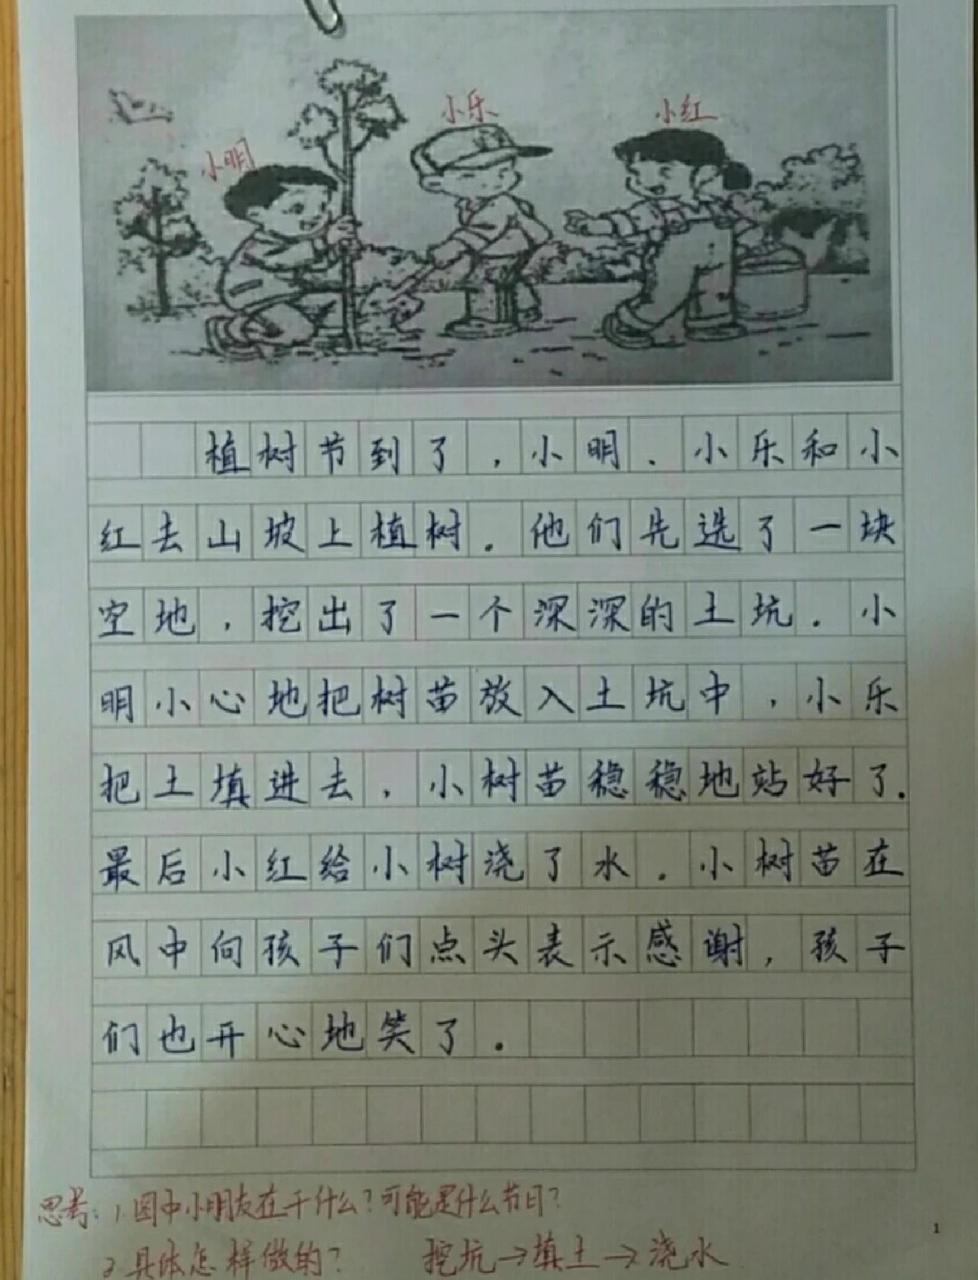 小明
小乐
小红
植树节到了，小明、小乐和小
红去山坡上植树。他们先选了一块
空地，挖出了一个深深的土坑。小
明小心地把树苗放入土坑中，小乐
把土填进去，小树苗稳稳地站好了。
最后小红给小树浇了水。小树苗在
风中向孩子们点头表示感谢，孩子
们也开心地笑了。
思考：1.图中小朋友在干什么？可能是什么节日？
2.具体怎样做的？ 挖坑→填土→浇水
1